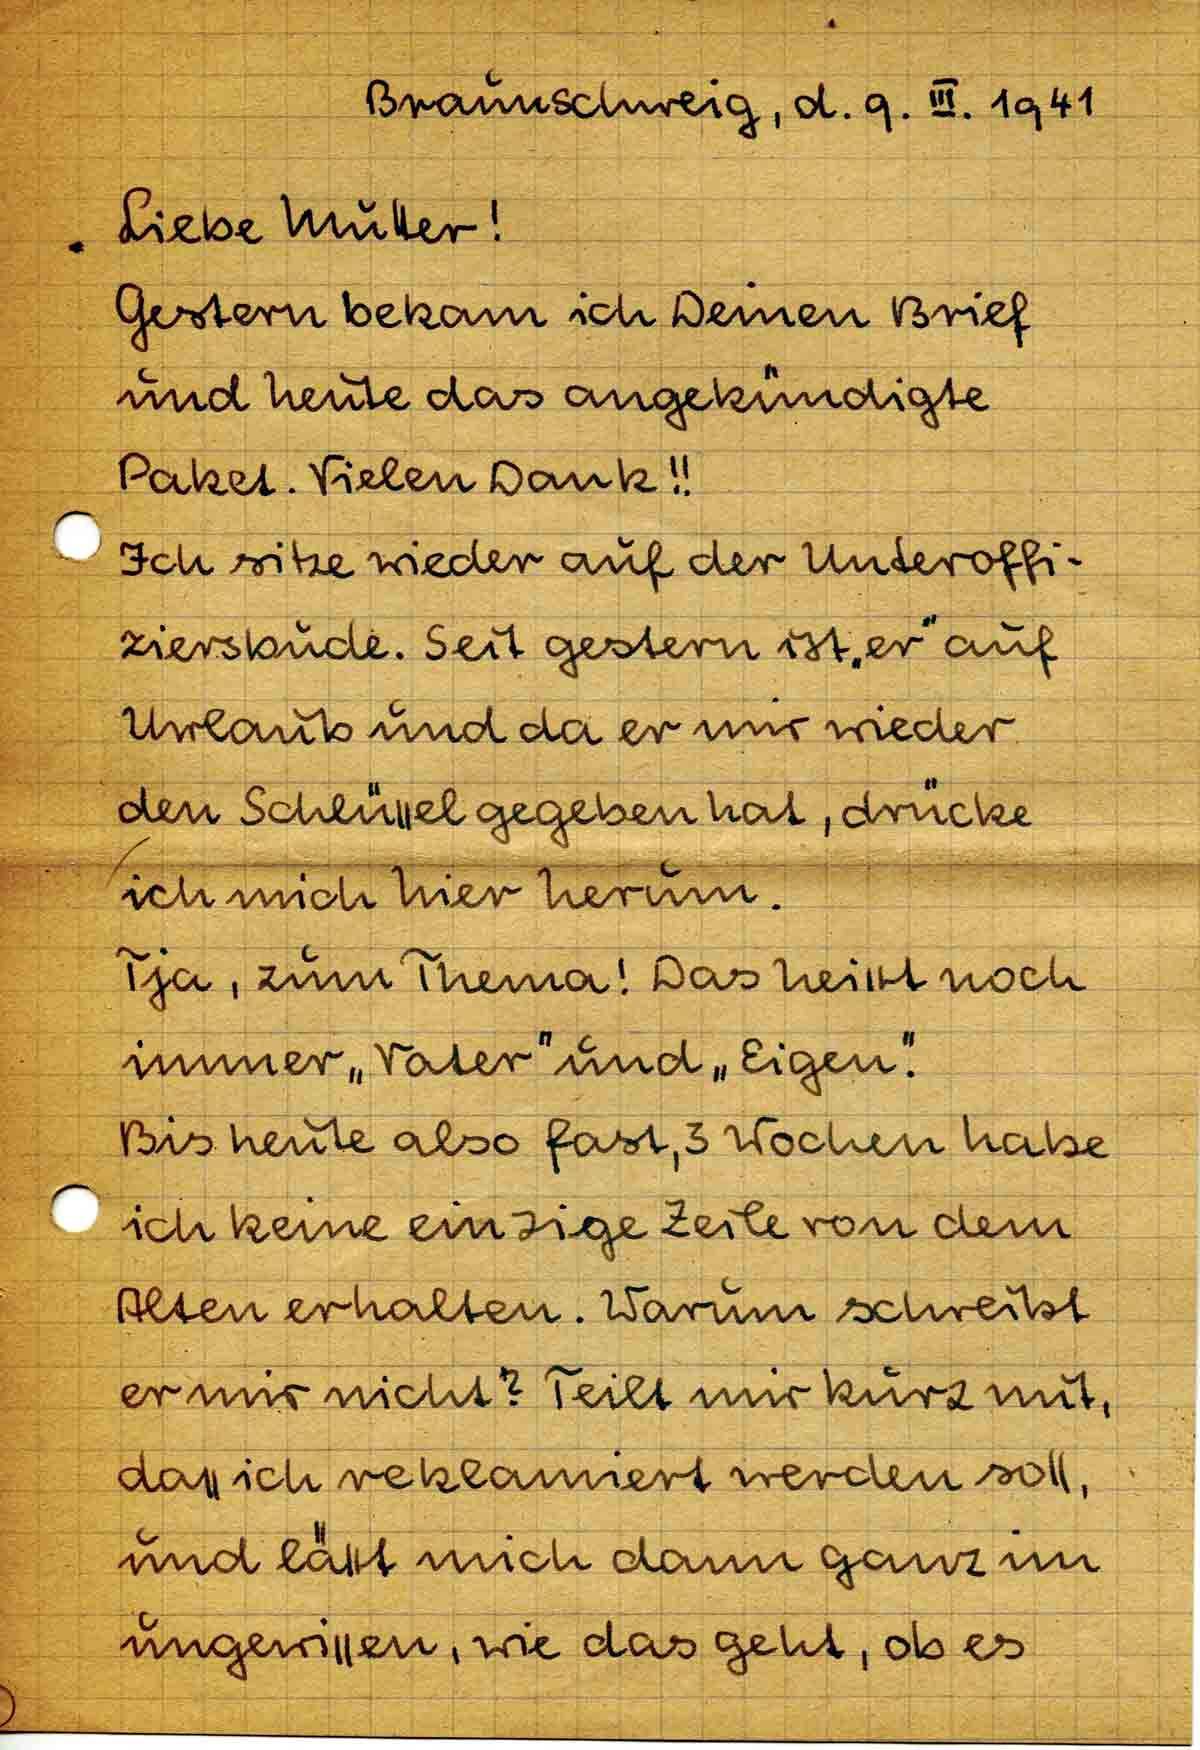 Braunschweig, d. 9. III. 1941
Liebe Mutter!
Gestern bekam ich Deinen Brief
und heute das angekündigte
Paket. Vielen Dank!!
Ich sitze wieder auf der Unteroffi-
ziersbude. Seit gestern ist „er“ auf
Urlaub und da er mir wieder
den Schlüssel gegeben hat, drücke
ich mich hier herum.
Tja, zum Thema! Das heisst noch
immer „Vater“ und „Eigen“.
Bis heute also fast, 3 Wochen habe
ich keine einzige Zeile von dem
Alten erhalten. Warum schreibt
er mir nicht? Teilt mir kurz mit,
dass ich reklamiert werden soll,
und lässt mich dann ganz im
ungewissen, wie das geht, ob es